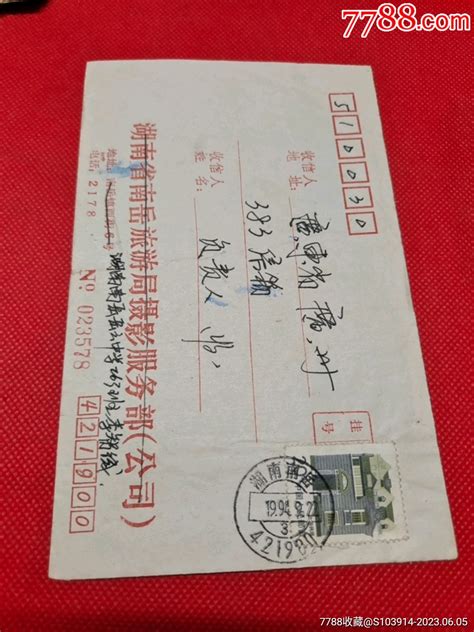 7788.com
510030
收信人
地址：
廣東省 廣州
383信箱
收信人
姓名：
负责人 收
挂
号
湖南省南岳旅游局摄影服务部(公司)
地址：
电话：2178
湖南南岳岳云中学263班李
№ 023578
421900
湖南南岳
7788收藏@S103914-2023.06.05